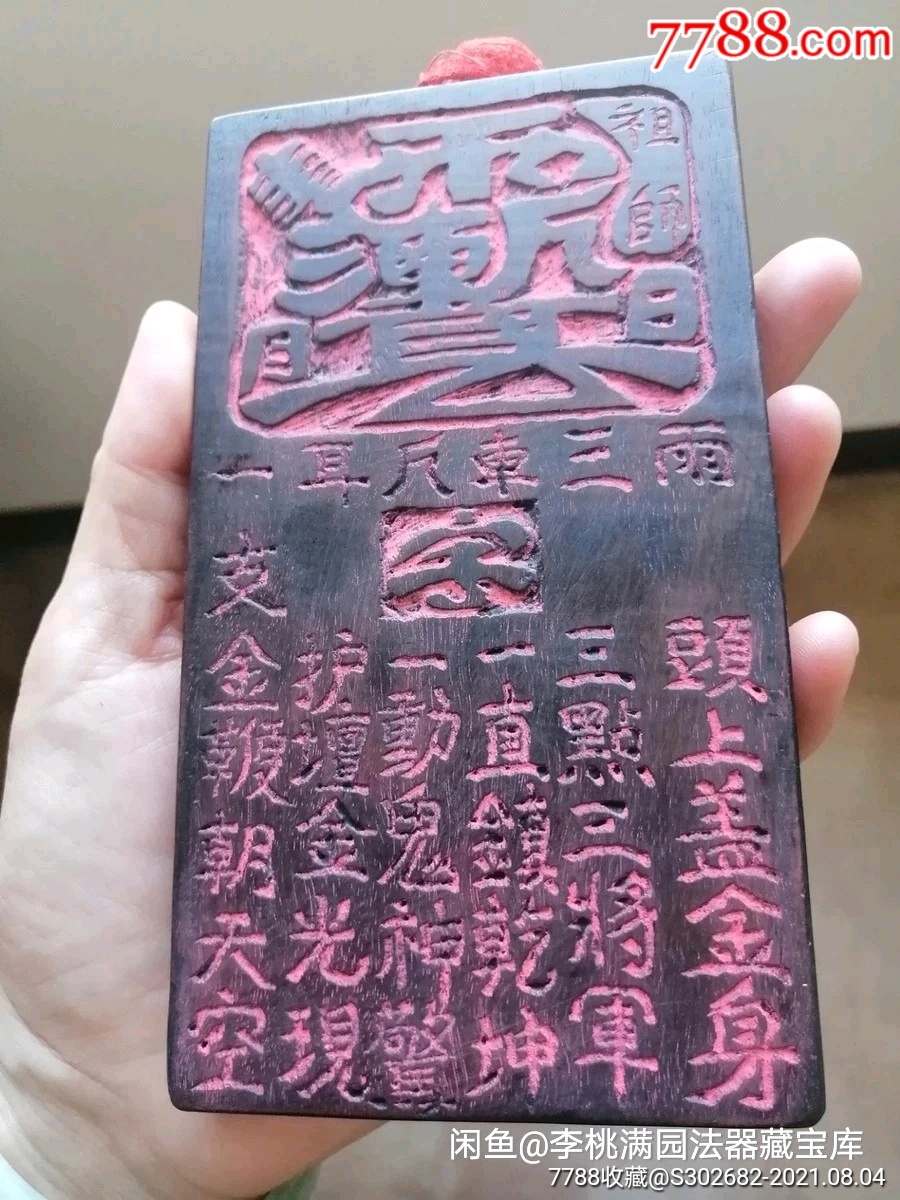 7788.com
祖師
日
目
雨三車凡耳一
宗
頭上盖金身
三點三將軍
一直鎮乾坤
一動鬼神驚
护壇金光現
支金鞭朝天空
闲鱼@李桃满园法器藏宝库
7788收藏@S302682-2021.08.04